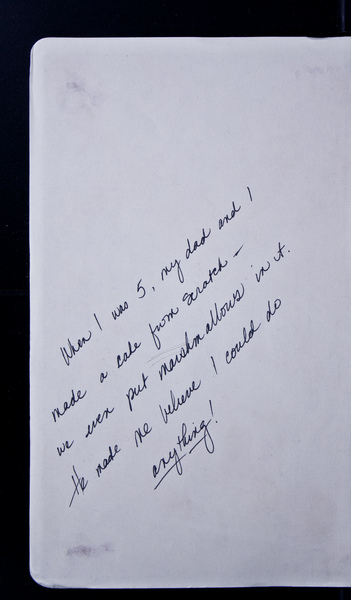 When I was 5, my dad and I
made a cake from scratch –
we even put marshmallows in it.
He made me believe I could do
anything!